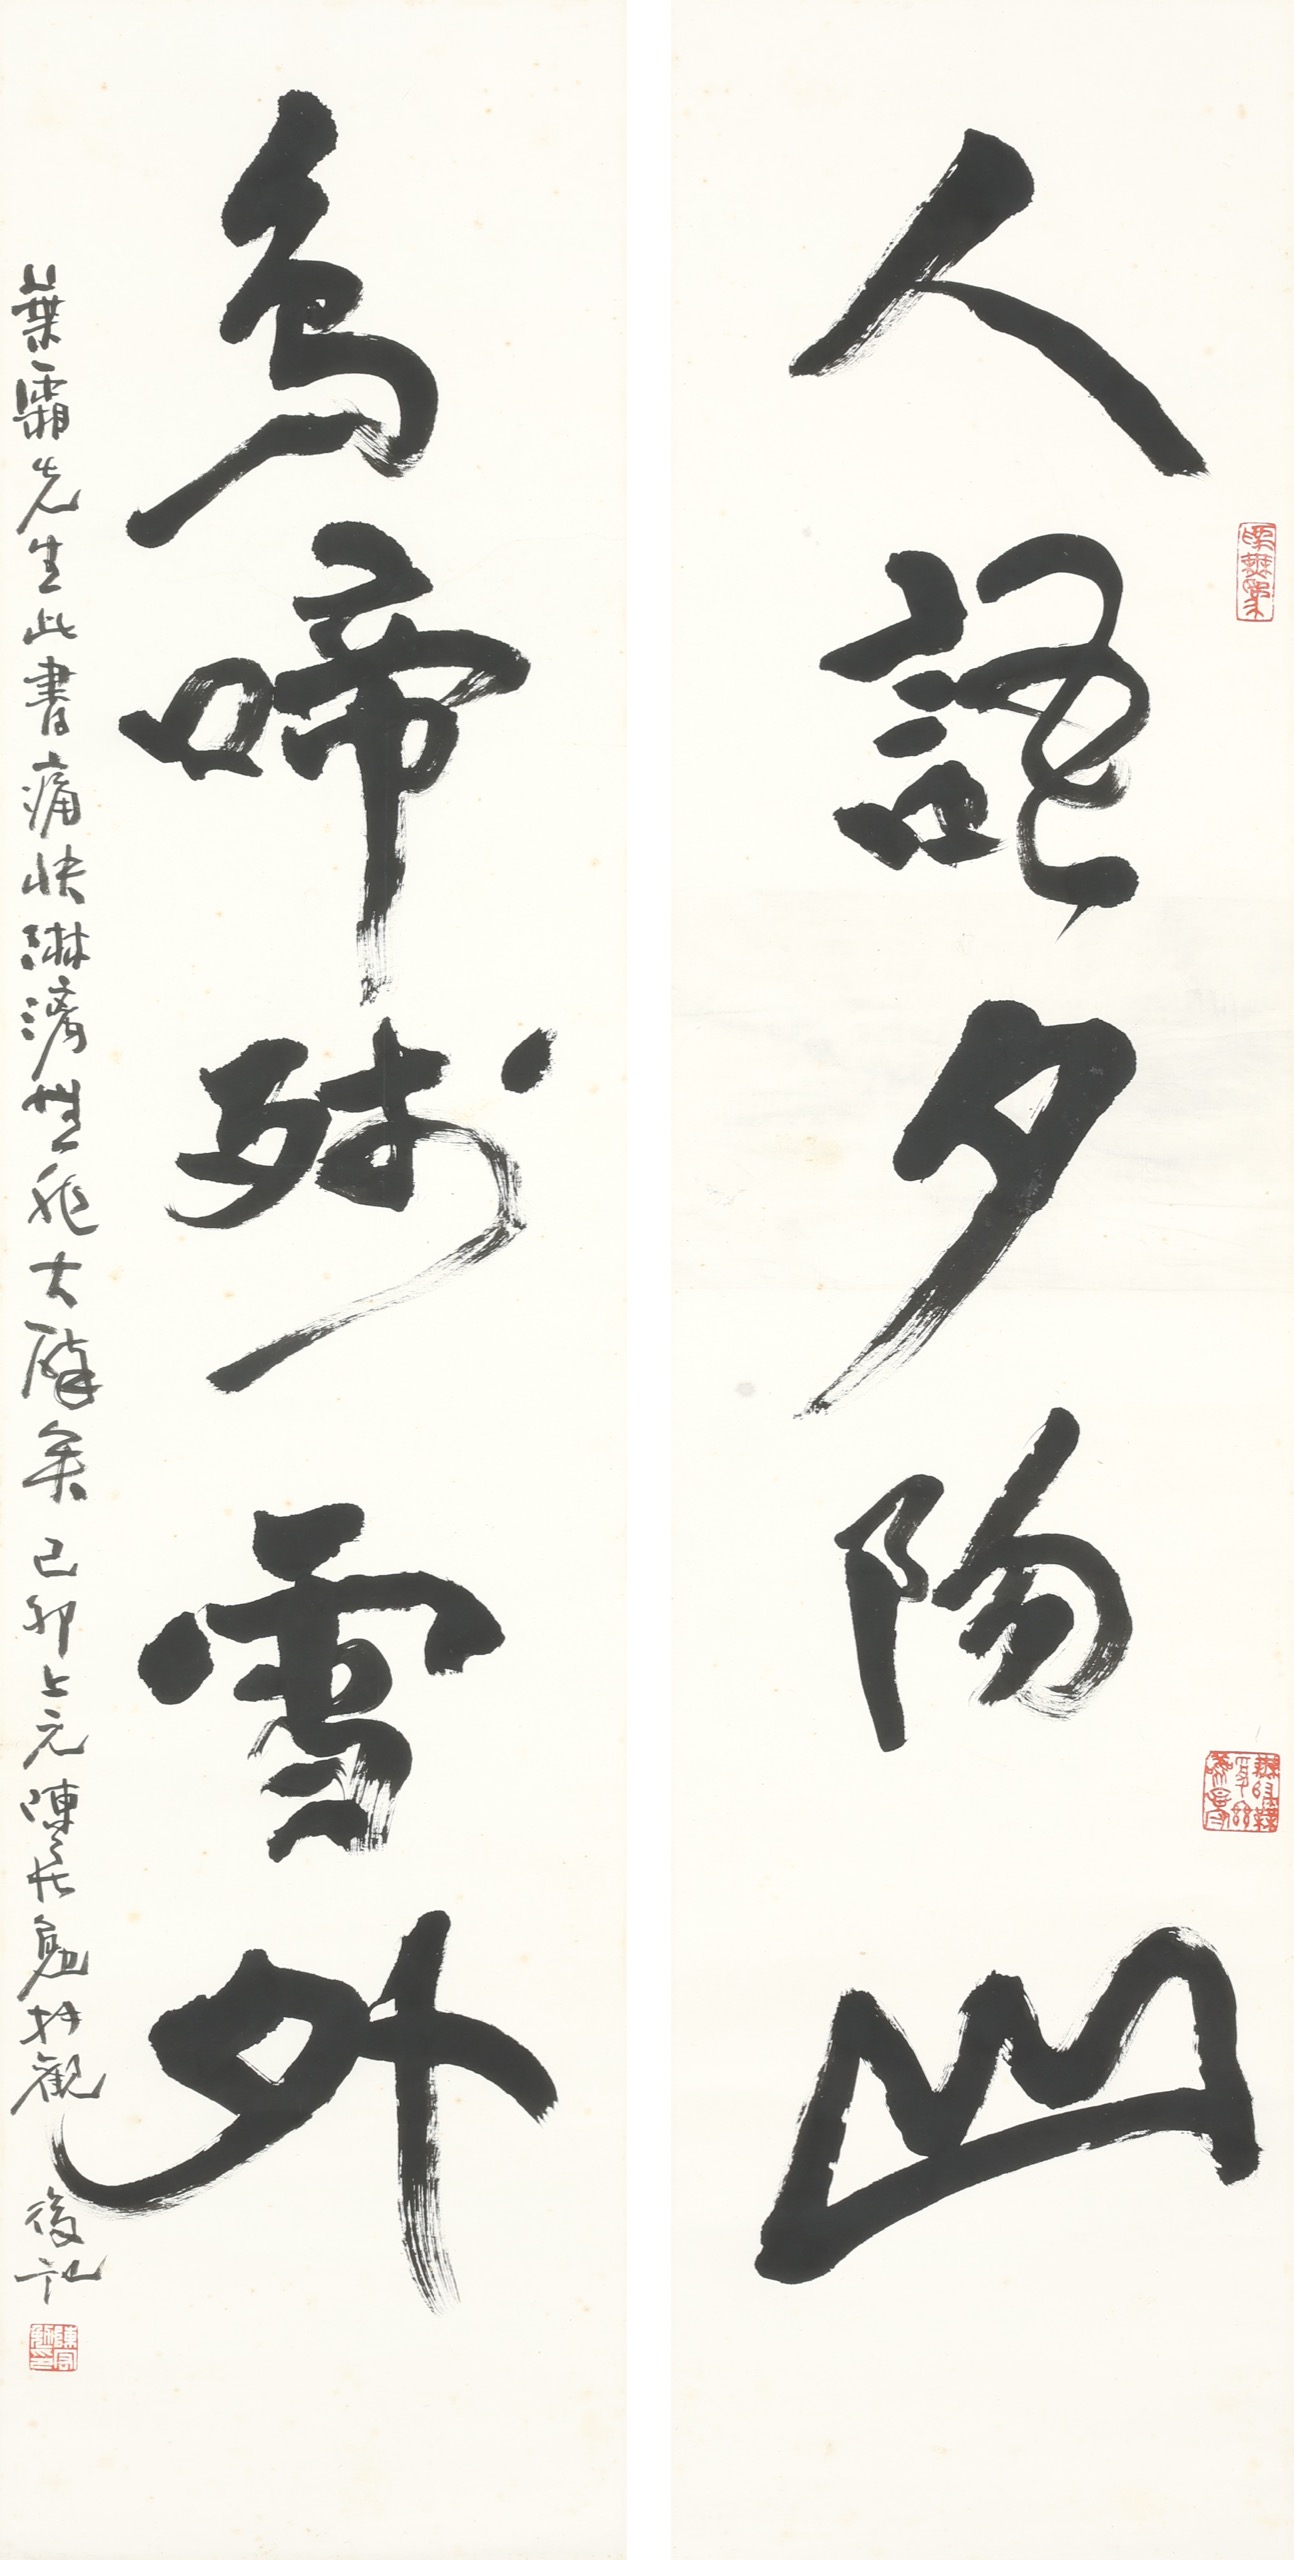 人語夕陽山
鳥啼殘雪外
葉霜先生此書痛快淋漓性飛大醉矣己卯上元陳宏勉拜觀後記